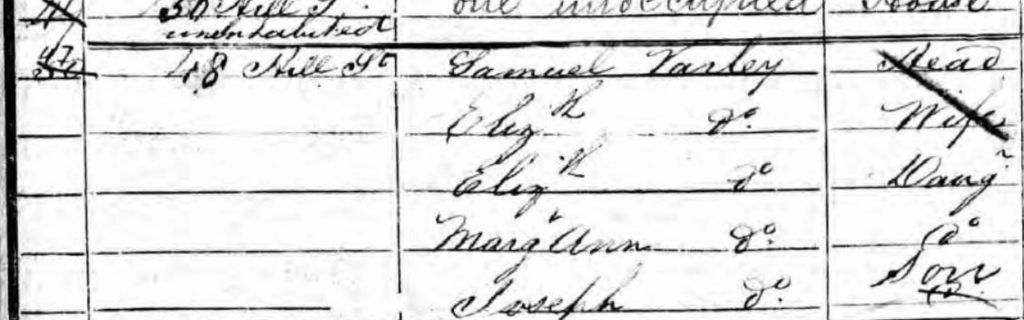 50 Hill St. one unoccupied House
uninhabited
47
48 Hill St Samuel Varley Head
Elizth do. Wife
Elizth do Daugr
Margt Ann do. do
Joseph do. Son